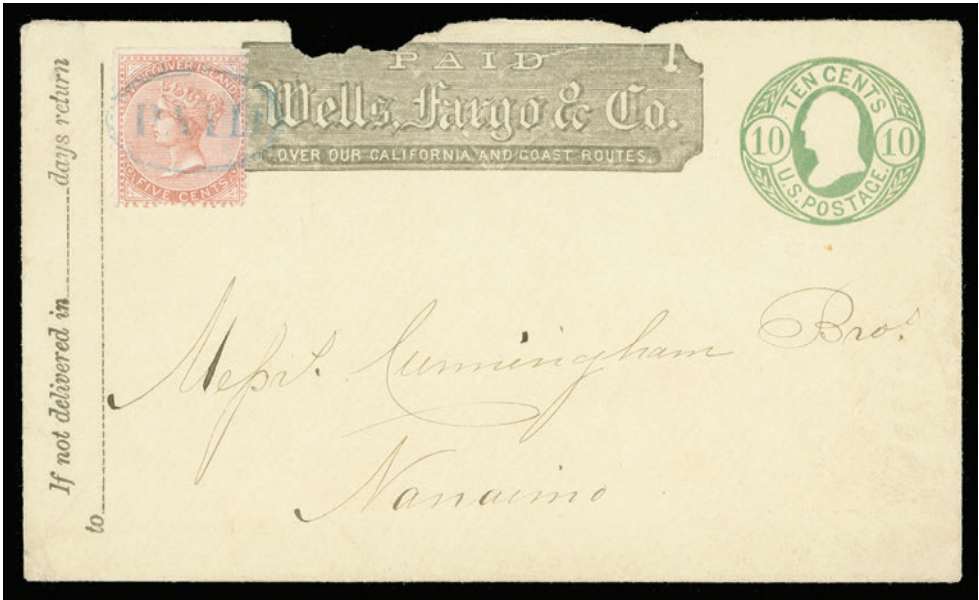 If not delivered in days return
to
VANCOUVER ISLAND
FIVE CENTS
PAID
Wells, Fargo & Co.
OVER OUR CALIFORNIA AND COAST ROUTES.
TEN CENTS
10 10
U.S. POSTAGE.
Messrs. Cunningham Bros.
Nanaimo